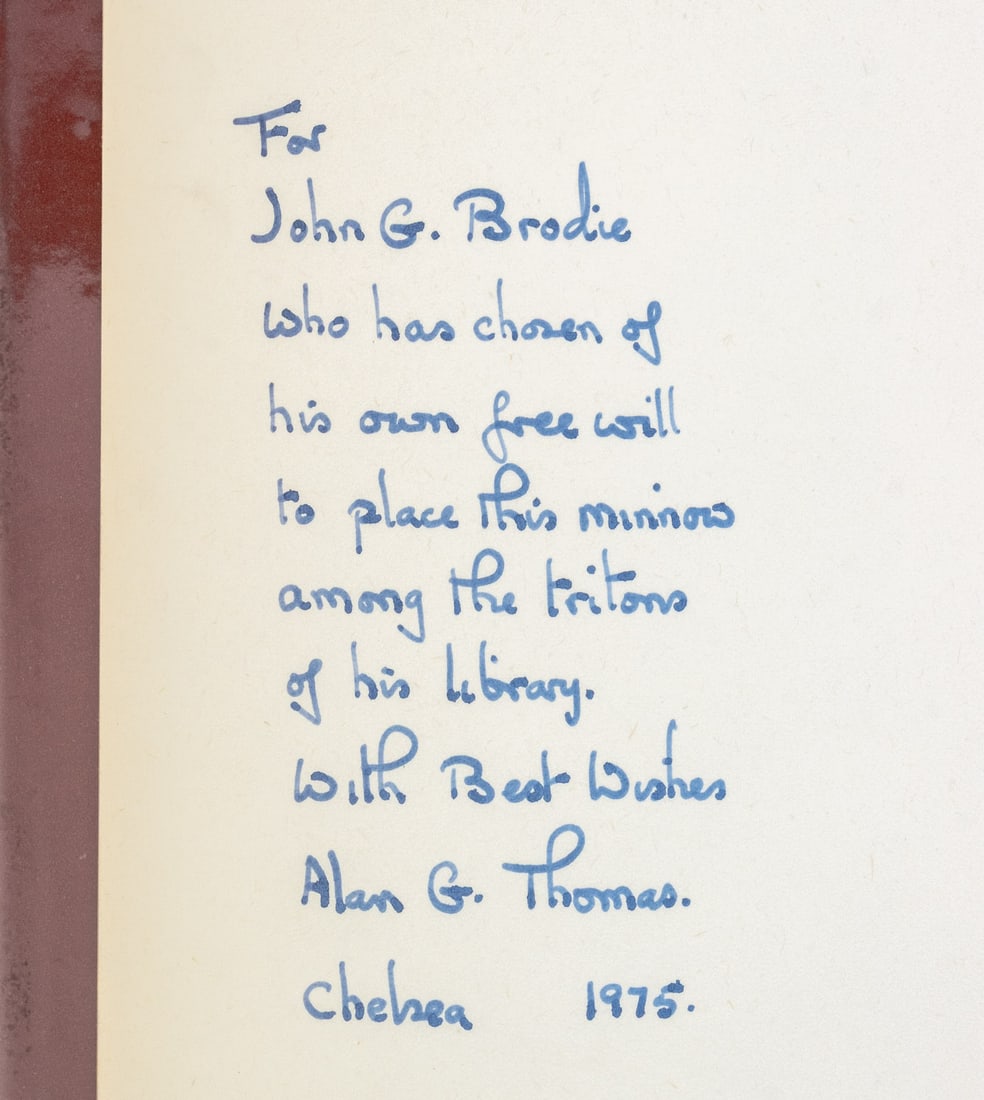 For
John G. Brodie
who has chosen of
his own free will
to place this minnow
among the tritons
of his library.
With Best Wishes
Alan G. Thomas.
Chelsea 1975.